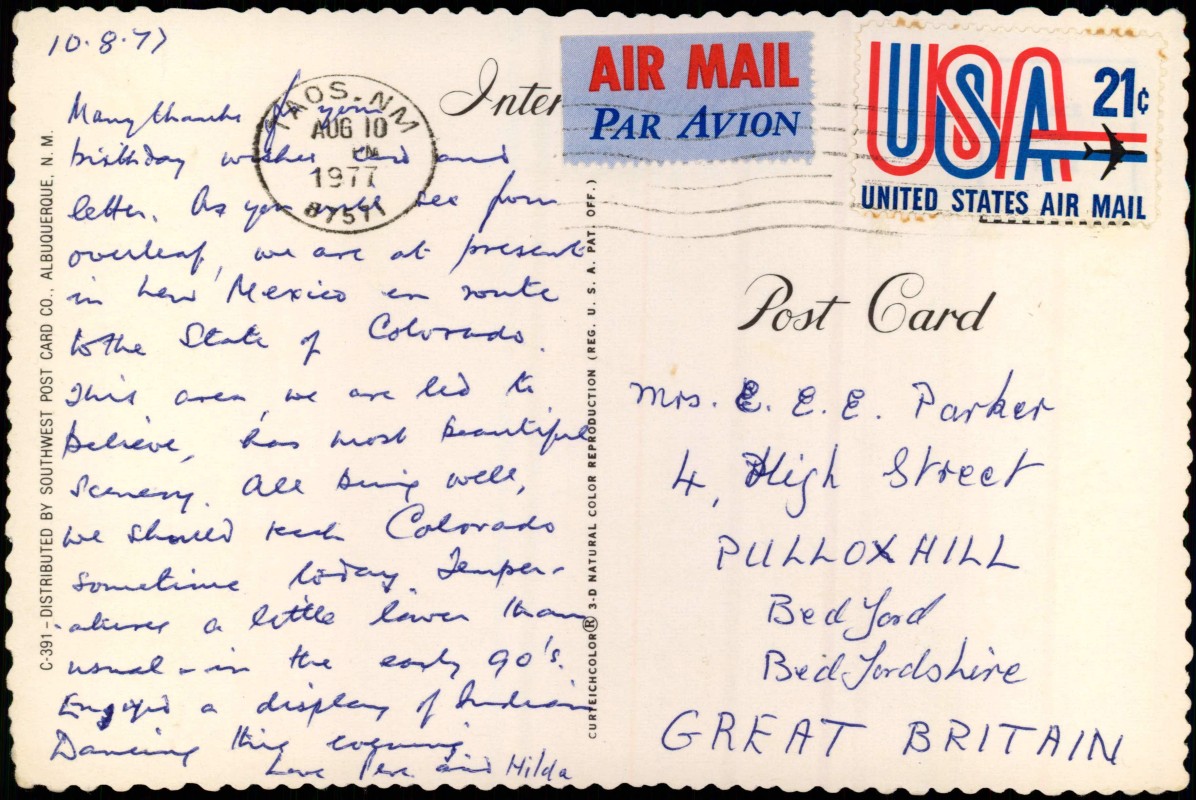 10.8.77
Many thanks for your
birthday wishes card and
letter. As you will see from
overleaf, we are at present
in New Mexico en route
to the State of Colorado.
This area, we are led to
believe, has most beautiful
scenery. All being well,
we should reach Colorado
sometime today. Temper-
-atures a little lower than
usual - in the early 90's.
Enjoyed a display of Indian
Dancing this evening.
Love and Hilda
C-391 – DISTRIBUTED BY SOUTHWEST POST CARD CO., ALBUQUERQUE, N. M.
TAOS, NM
AUG 10
PM
1977
87571
Inter
AIR MAIL
PAR AVION
USA
21¢
UNITED STATES AIR MAIL
CURTEICHCOLOR® 3-D NATURAL COLOR REPRODUCTION (REG. U. S. A. PAT. OFF.)
Post Card
Mrs. E. E. E. Parker
4, High Street
PULLOXHILL
Bedford
Bedfordshire
GREAT BRITAIN